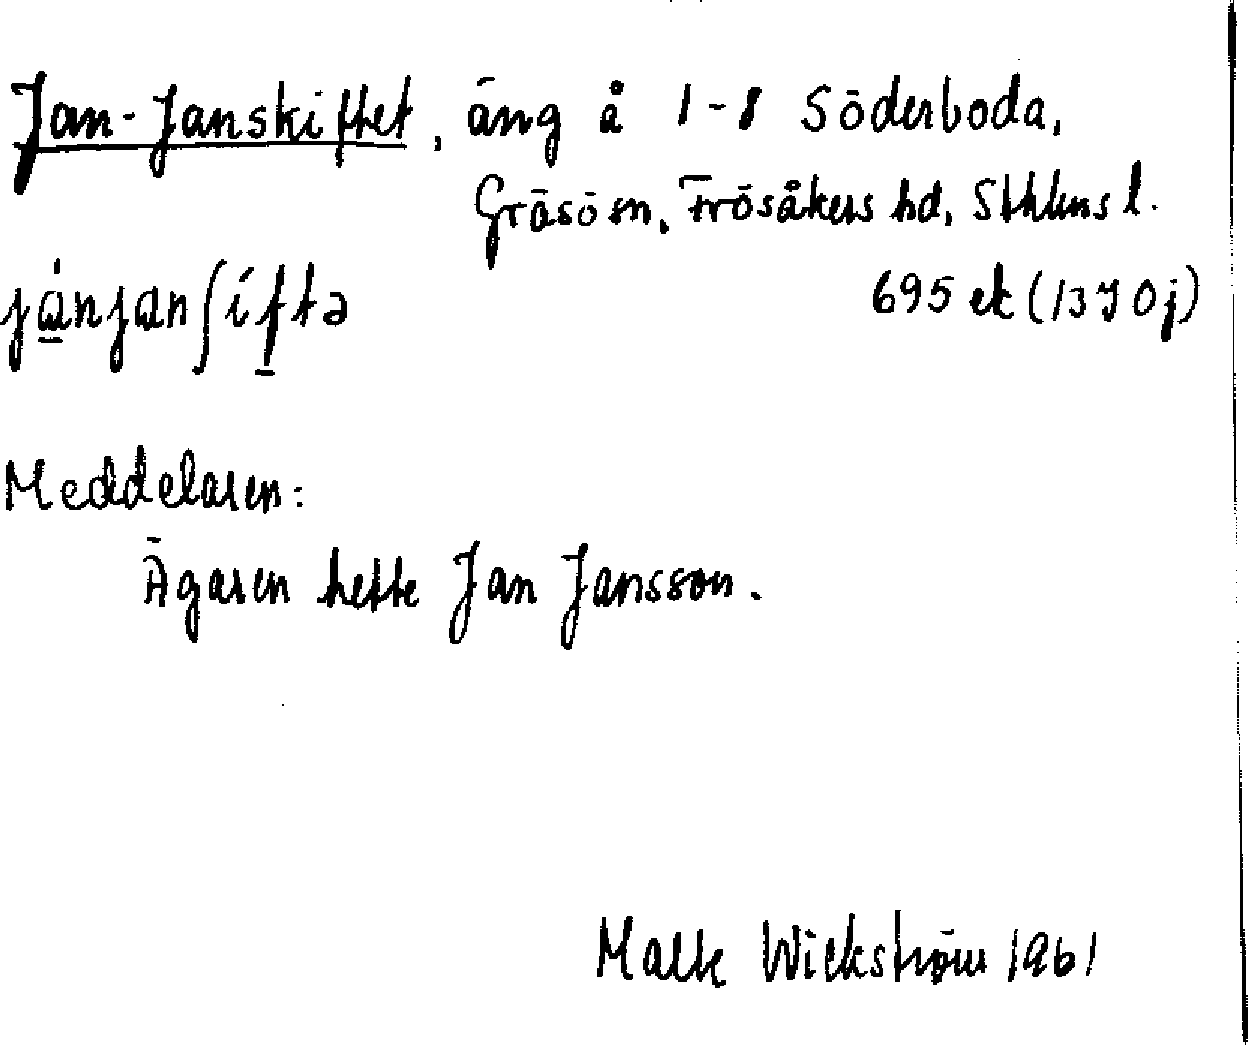 Jan-Janskiftet, äng å 1-8 Söderboda,
Gräsö sn, Frösåkers hd, Sthlms l.
jánjanʃíftə 695 ek (13I 0j)
Meddelaren:
Ägaren hette Jan Jansson.
Malte Wickström 1961